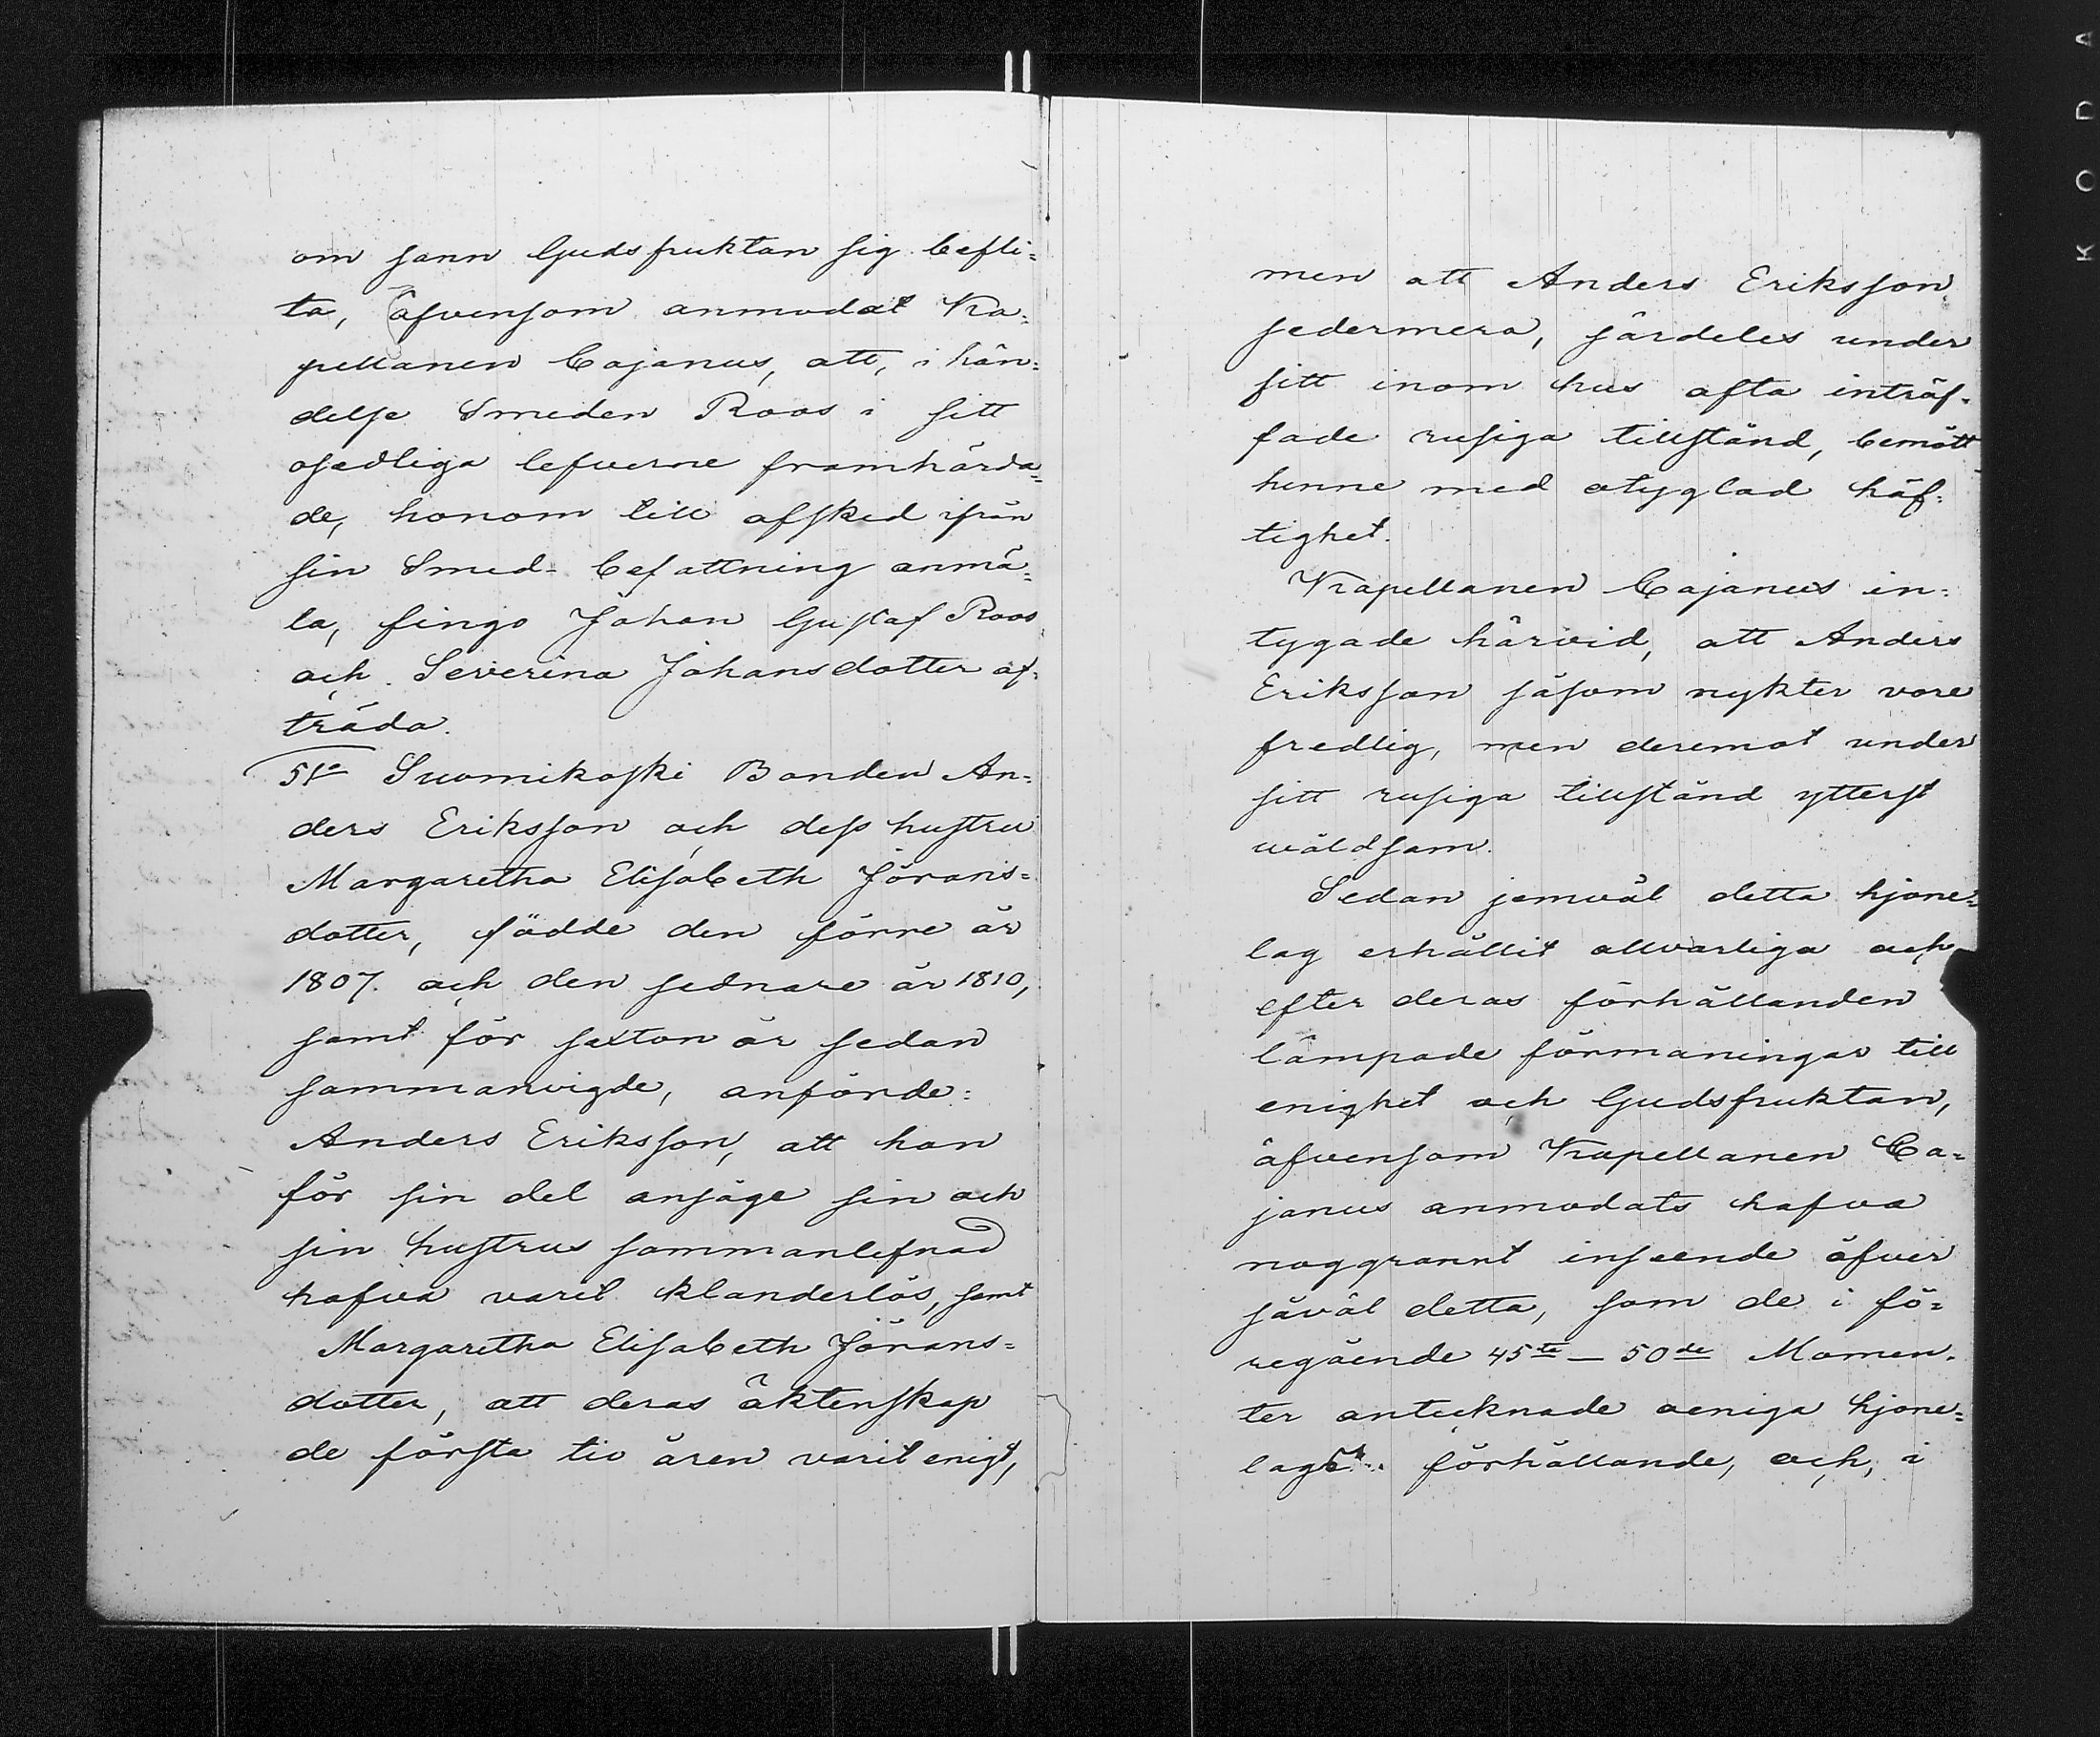 om sann Gudsfruktan sig befli=
ta, äfvensom anmodat Ka=
pellanen Cajanus, att, i hän=
delse Smeden Roos i sitt
osedliga lefverne framhärda=
de, honom till afsked ifrån
sin Smed-befattning anmä=
la, fingo Johan Gustaf Roos
och Severina Johansdotter af=
träda.
51o Suomikoski Bonden An=
ders Eriksson och dess hustru
Margaretha Elisabeth Jörans=
dotter, födde den förre år
1807. och den sednare år 1810,
samt för sexton år sedan
sammanvigde, anförde:
Anders Eriksson, att han
för sin del ansåge sin och
sin hustrus sammanlefnad
hafva varit klanderlös, samt
Margaretha Elisabeth Jörans=
dotter, att deras äktenskap
de första tio åren varit enigt,
men att Anders Eriksson
sedermera, särdeles under
sitt inom hus ofta inträf=
fade rusiga tillstånd, bemött
henne med otyglad häf=
tighet.
Kapellanen Cajanus in=
tygade härvid, att Anders
Eriksson såsom nykter vore
fredlig, men deremot under
sitt rusiga tillstånd ytterst
wåldsam.
Sedan jemväl detta hjone=
lag erhållit allvarliga och
efter deras förhållanden
lämpade förmaningar till
enighet och Gudsfruktan,
äfvensom Kapellanen Ca=
janus anmodats hafva
noggrannt inseende öfver
såväl detta, som de i fö=
regående 45te – 50de Momen=
ter antecknade oeniga hjone=
lags förhållande, och, i
KODA